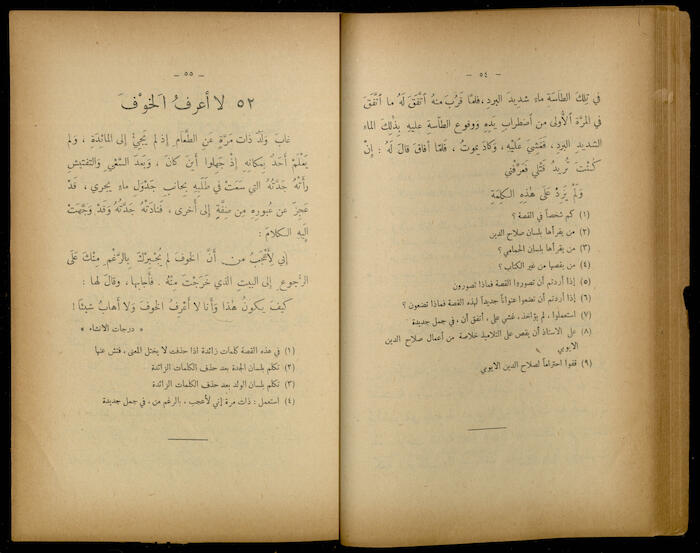 — ٥٤ —
في تِلكَ الطَّاسَةِ ماء شديدَ البردِ، فلمَّا قَرُبَ مِنهُ اتَّفَقَ لَهُ ما اتَّفَقَ
في المرَّة الأُولى من اضطِراب يَدِهِ ووقوع الطَّاسة عليهِ بِذٰلِكَ الماء
الشديدِ البردِ، فَغُشِيَ عَلَيْهِ، وكادَ يموتُ، فَلمَّا أفاق قالَ لَهُ: إنْ
كُنْتَ تُريدُ قَتْلي فَعَرِّفْني
وَلَمْ يَزِدْ عَلى هٰذِهِ الكلِمَةِ
(١) كم شخصاً في القصة ؟
(٢) من يقرأها بلسان صلاح الدين
(٣) من يقرأها بلسان الحمامي ؟
(٤) من يقصها من غير الكتاب ؟
(٥) إذا أردتم أن تصوروا القصة فماذا تصورون
(٦) إذا أردتم أن تضعوا عنواناً جديداً لهذه القصة فماذا تضعون ؟
(٧) استعملوا، لم يؤاخذ، غشي على، أتفق أن، في جمل جديدة
(٨) على الاستاذ أن يقص على التلاميذ خلاصة من أعمال صلاح الدين
الايوبي
(٩) قفوا احتراماً لصلاح الدين الايوبي
— ٥٥ —
٥٢ لا أعرفُ الخوْفَ
غابَ ولَدٌ ذات مَرَّةٍ عَنِ الطَّعامِ إذ لم يَجِئْ إلى المائدَةِ، ولم
يَعْلَمْ أَحَدٌ بِمكانِهِ إذْ جَهِلوا أينَ كانَ، وبَعدَ السَّعْيِ والتفتيشِ
رأتْهُ جَدَّتُهُ التي سَعَتْ في طَلَبِهِ بجانِبِ جَدْوَلِ ماءٍ يجري، قَدْ
عَجِزَ عن عُبورِهِ مِن ضِفَّةٍ إلى أخرى، فَنادَتْهُ جَدَّتُهُ وَقَدْ وَجَّهَتْ
إليهِ الكلامَ:
إني لأَعْجَبُ من أنَّ الخوفَ لم يُجْبِرْكَ بِالرَّغْمِ مِنْكَ عَلَى
الرُّجوعِ إلى البيتِ الذي خَرَجْتَ مِنْهُ. فأجابها، وقالَ لها:
كيفَ يكونُ هٰذا وَأنا لا أعْرِفُ الخوفَ وَلا أهابُ شيئاً!
« درجات الانشاء »
(١) في هذه القصة كلمات زائدة اذا حذفت لا يختل المعنى، فتش عنها
(٢) تكلم بلسان الجدة بعد حذف الكلمات الزائدة
(٣) تكلم بلسان الولد بعد حذف الكلمات الزائدة
(٤) استعمل: ذات مرة إني لأعجب، بالرغم من، في جمل جديدة